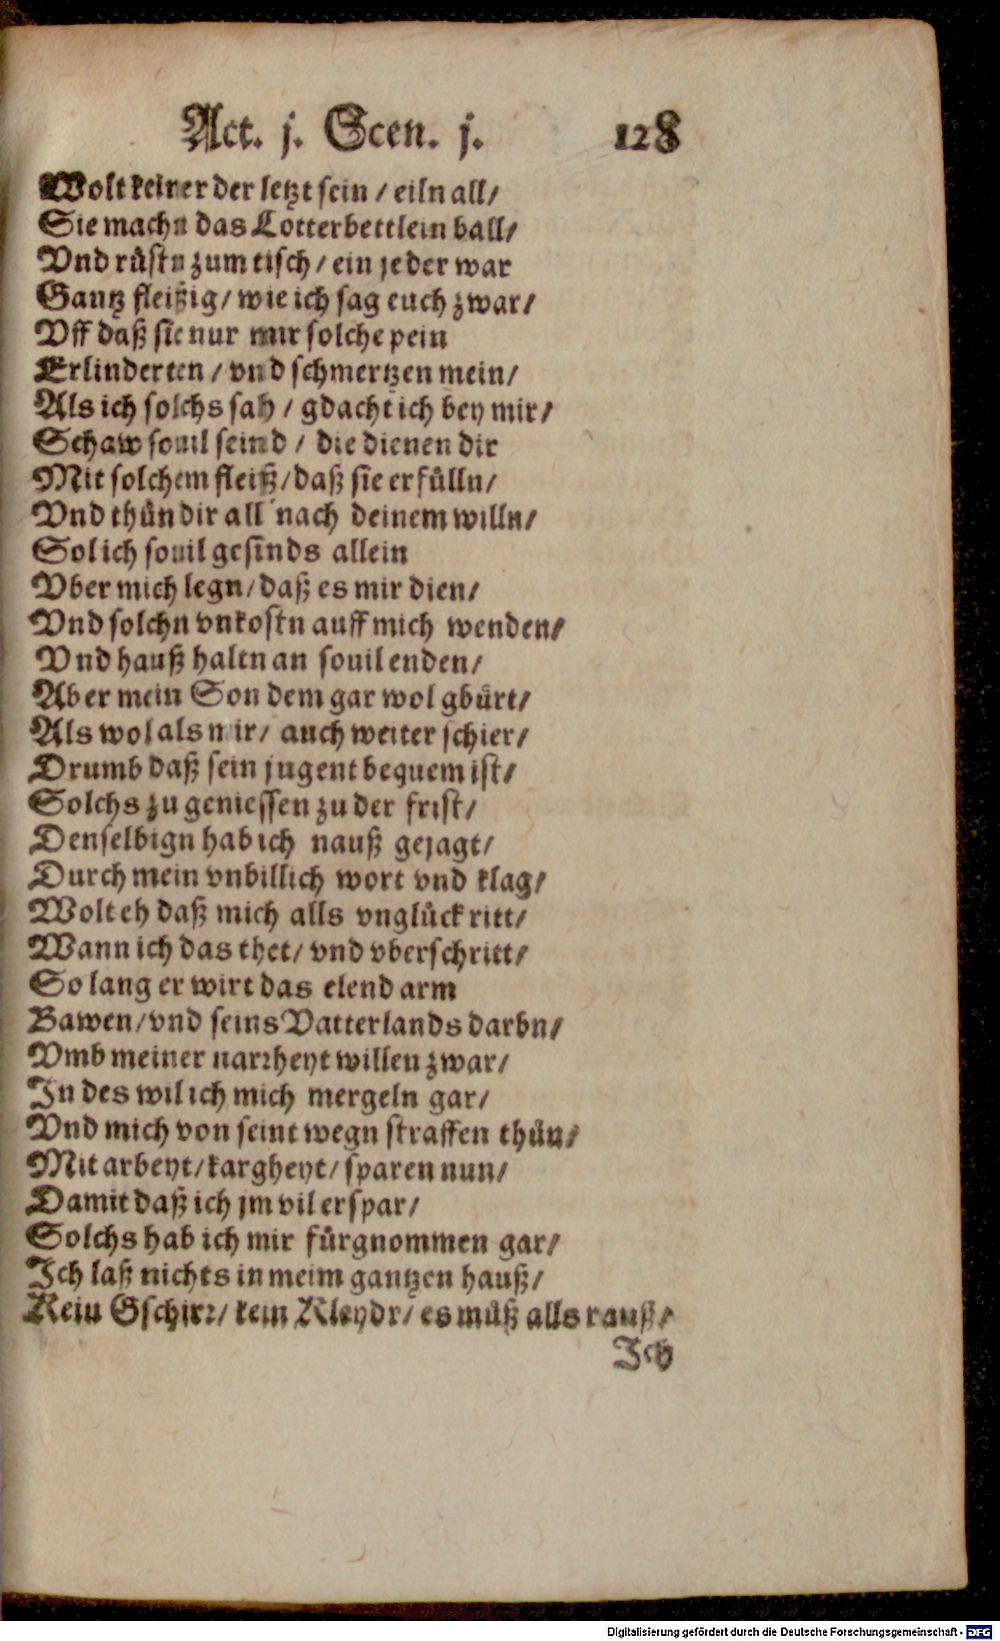 Act. j. Scen. j. 128
Wolt keiner der letzt sein / eiln all/
Sie machn das Lotterbettlein ball/
Vnd rüstn zum tisch / ein jeder war
Gantz fleißig/ wie ich sag euch zwar/
Vff daß sie nur mir solche pein
Erlinderten / vnd schmertzen mein/
Als ich solchs sah / gdacht ich bey mir/
Schaw souil seind / die dienen dir
Mit solchem fleiß/daß sie erfülln/
Vnd thůn dir all nach deinem willn/
Sol ich souil gesinds allein
Vber mich legn/daß es mir dien/
Vnd solchn vnkostn auff mich wenden/
Vnd hauß haltn an souil enden/
Aber mein Son dem gar wol gbürt/
Als wol als mir/ auch weiter schier/
Drumb daß sein jugent bequem ist/
Solchs zu geniessen zu der frist/
Denselbign hab ich nauß gejagt/
Durch mein vnbillich wort vnd klag/
Wolt eh daß mich alls vnglück ritt/
Wann ich das thet/ vnd vberschritt/
So lang er wirt das elend arm
Bawen/vnd seins Vatterlands darbn/
Vmb meiner narrheyt willen zwar/
In des wil ich mich mergeln gar/
Vnd mich von seint wegn straffen thün/
Mit arbeyt/kargheyt/ sparen nun/
Damit daß ich jm vil erspar/
Solchs hab ich mir fürgnommen gar/
Ich laß nichts in meim gantzen hauß/
Kein Gschirr/ kein Kleydr/ es můß alls rauß/
Ich
Digitalisierung gefördert durch die Deutsche Forschungsgemeinschaft - DFG